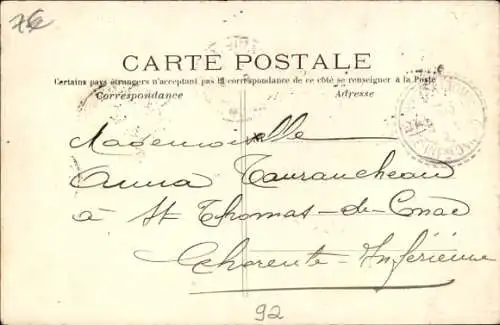 7€
CARTE POSTALE
Certains pays étrangers n'acceptent pas la correspondance de ce côté se renseigner à la Poste
Correspondance
Adresse
Mademoiselle
Anna Tauraucheau
à St Thomas-de-Conac
Charente-Inférieure
92